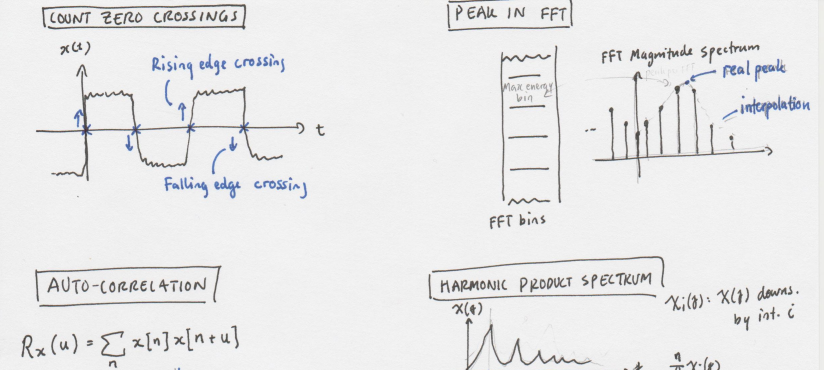 COUNT ZERO CROSSINGS
x(t)
Rising edge crossing
t
Falling edge crossing
PEAK IN FFT
Max energy
bin
FFT bins
FFT Magnitude Spectrum
real peak
interpolation
AUTO-CORRELATION
Rx(u) = ∑ x[n] x[n+u]
n
HARMONIC PRODUCT SPECTRUM
X(f)
Xi(f): X(f) downs.
by int. i